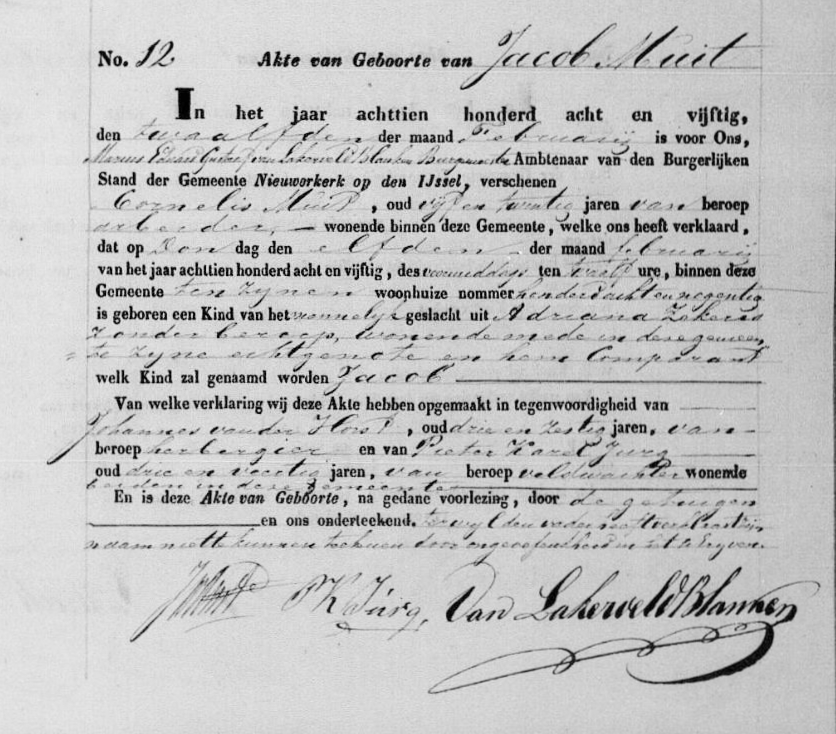 No. 12 Akte van Geboorte van Jacob Muit
In het jaar achttien honderd acht en vijftig,
den twaalfden der maand Februarij is voor Ons,
Marius Eduard Gustaaf van Lakerveld Blanken Burgemeester Ambtenaar van den Burgerlijken
Stand der Gemeente Nieuwerkerk op den IJssel, verschenen
Cornelis Muit, oud vijf en twintig jaren van beroep
arbeider, wonende binnen deze Gemeente, welke ons heeft verklaard,
dat op Don dag den elfden der maand februarij
van het jaar achttien honderd acht en vijftig, des voormiddags ten twaalf ure, binnen deze
Gemeente ten zynen woonhuize nommer honderd acht en negentig
is geboren een Kind van het mannelijk geslacht uit Adriana
zonder beroep, wonende mede in deze gemeen
te zyne echtgenote en hem Comparant
welk Kind zal genaamd worden Jacob
Van welke verklaring wij deze Akte hebben opgemaakt in tegenwoordigheid van
Johannes van der Horst, oud drie en zestig jaren, van
beroep herbergier en van Pieter Karel Jurg
oud drie en veertig jaren, van beroep veldwachter wonende
beiden in deze gemeente
En is deze Akte van Geboorte, na gedane voorlezing, door de getuigen
en ons onderteekend. terwyl den vader heeft verklaard zijn
naam niet te kunnen teekenen door ongeoefendheid in het schryven.
PK Jürg, Van Lakerveld Blanken